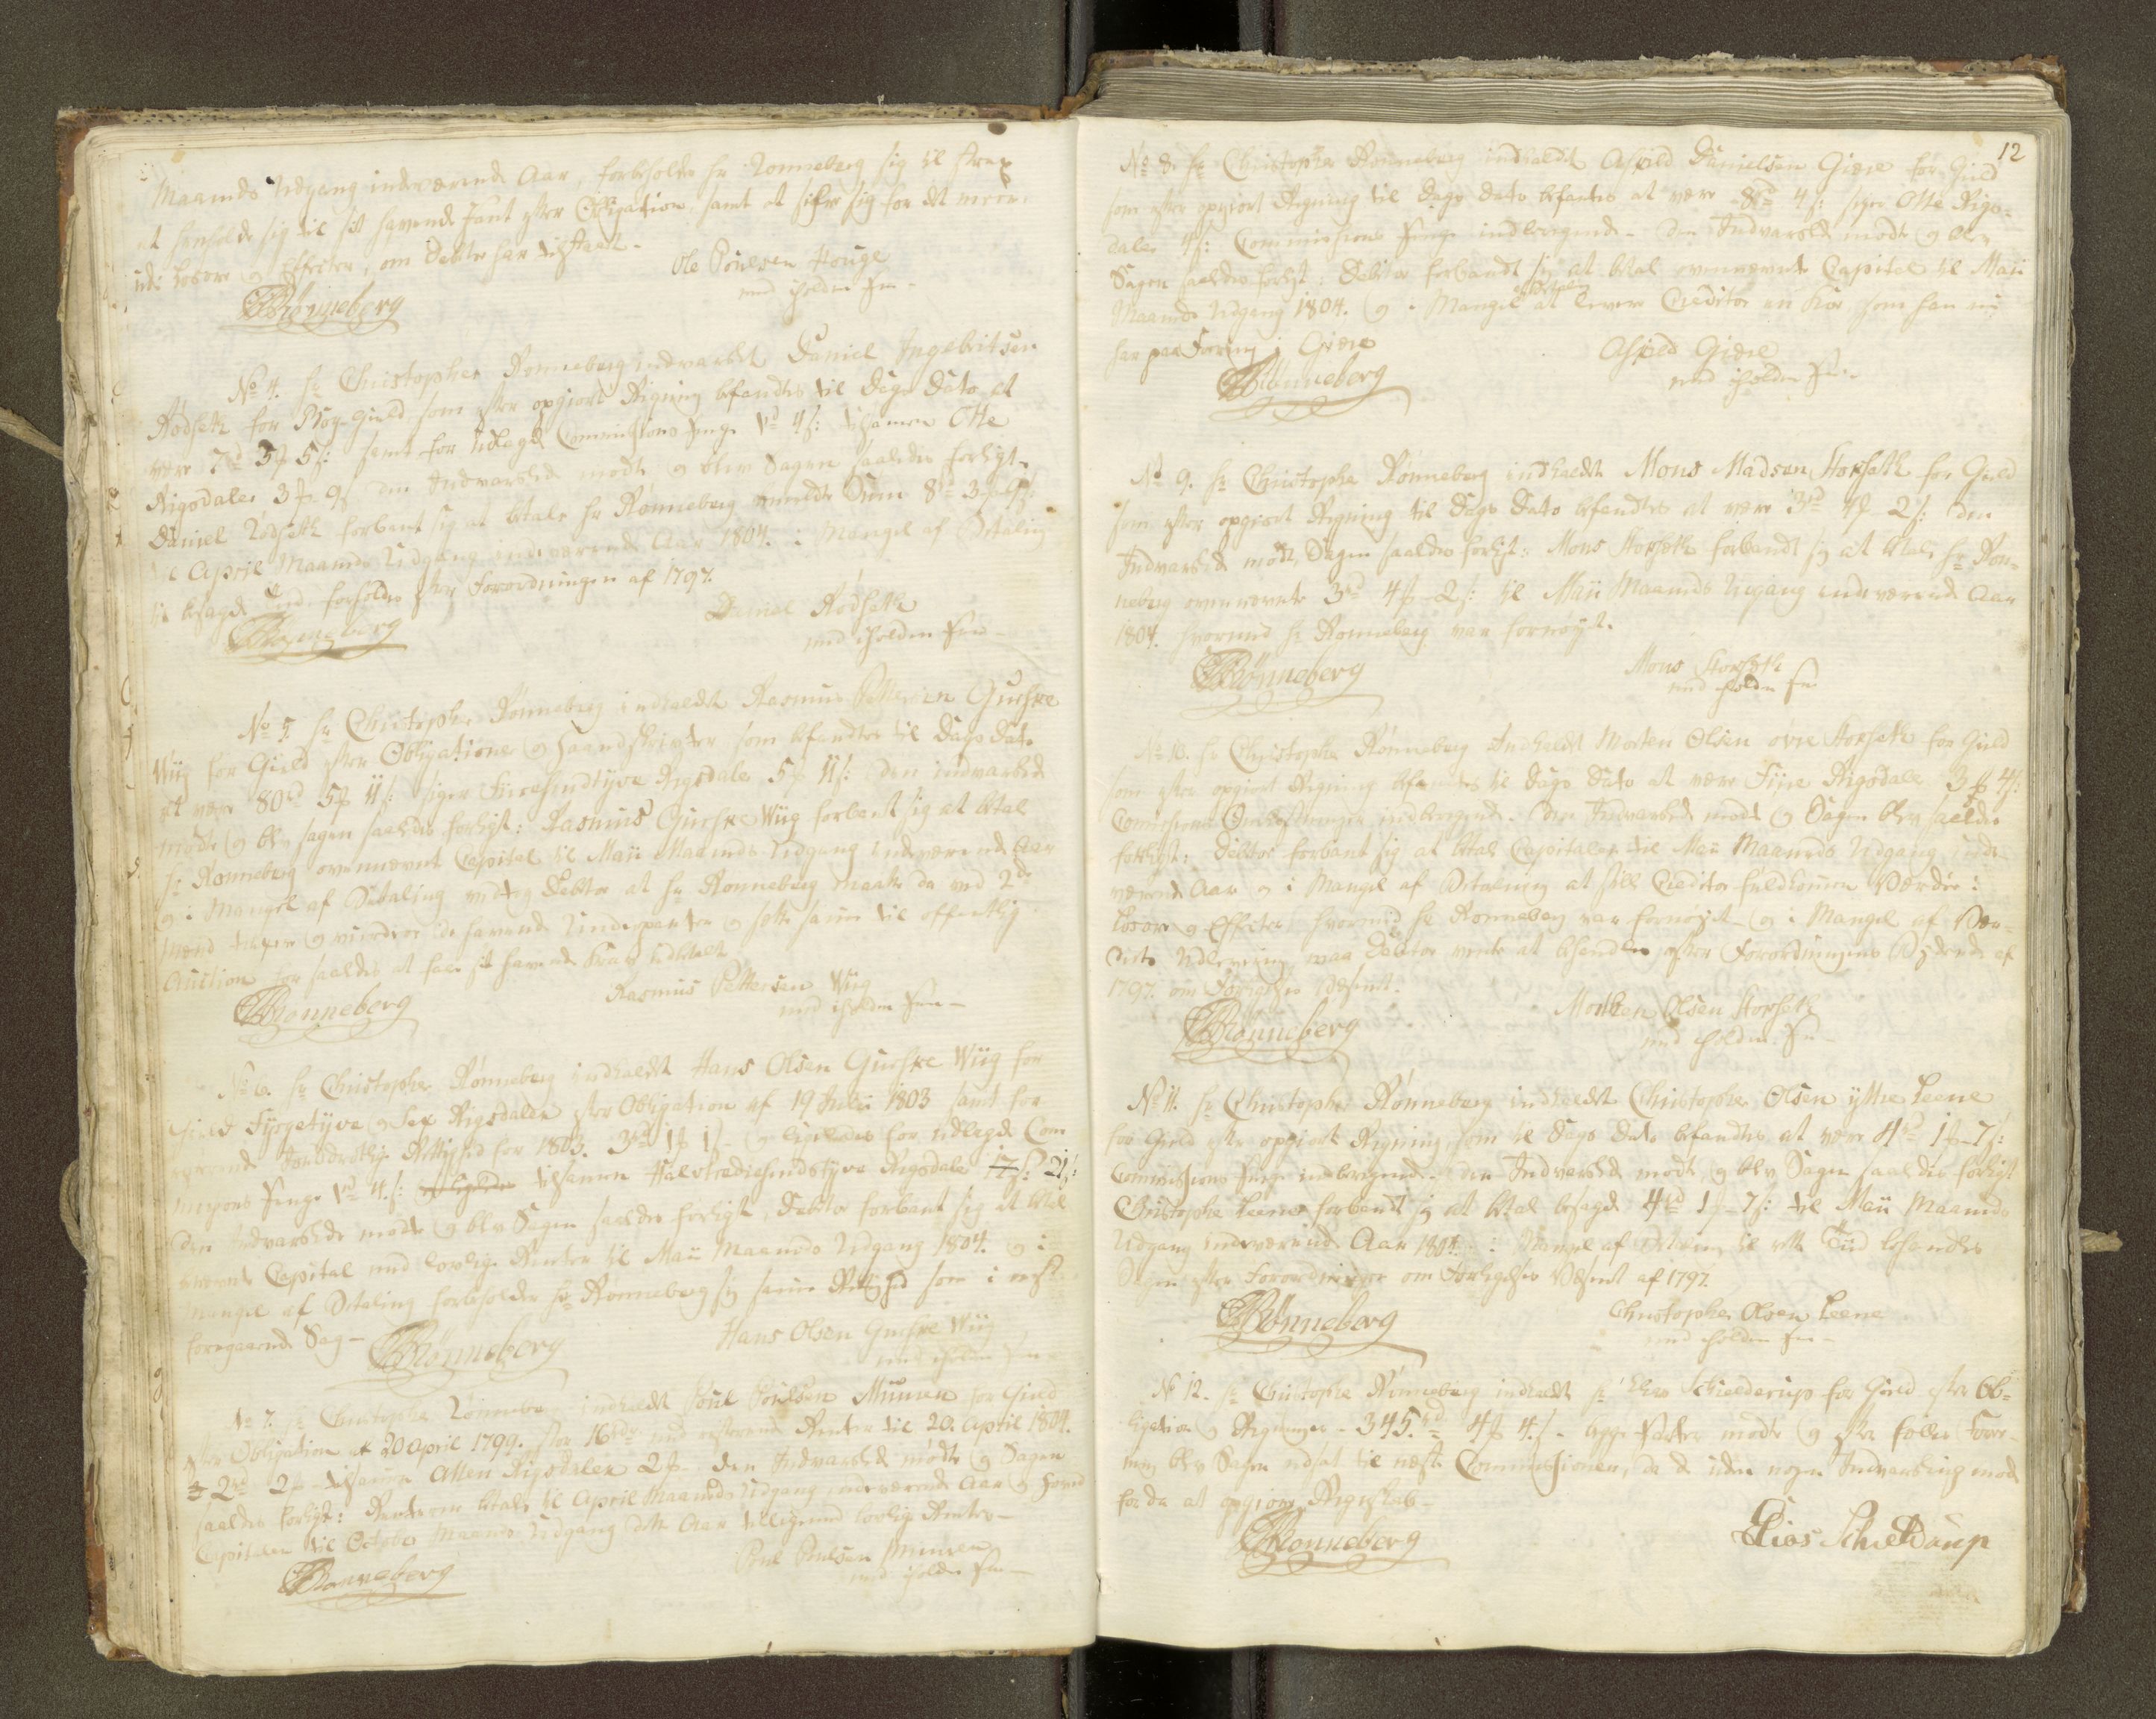 Maaneds Udgang indværende Aar, forbeholder hr Rønneberg sig til strax
at henholde sig til sit havende Pant efter Obligation, samt at sikre sig for det meere
udi Løsøre og Effecter, om Debitor har tilstaaet.
Ole Poulsen Houge
med iholden Pen
Rønneberg
No 4. hr Christopher Rønneberg indvarslet Daniel Ingebritsen
Rødseth for Bog-Gield som efter opgiort Regning befandtes til Dags Dato at
være 7rd 3f 5s: samt for Udlagde Commissions Penge 1rd 4s: tilsamen Otte
Rigsdaler 3f 9s den Indvarslede mødte og blev Sagen saaledes forligt.
Daniel Rødseth forbant sig at betale hr Rønneberg meeldte Sum 8rd 3f 9s:
til April Maaneds Udgang indeværende Aar 1804. i Mangel af Betaling
til besagde Tid forholdes efter Forordningen af 1797.
Daniel Rødseth
med iholden Pen
Rønneberg
No 5. hr Christopher Rønneberg indkaldt Rasmus Pettersen Gurske
Wiig for Gield efter Obligationer og Haandskrifter som befandtes til Dags Dato
at være 80rd 5f 11s: siger Fiiresindtyve Rigsdaler 5f 11s: den indvarslede
mødte og blev sagen saaledes forligt: Rasmus Gurske Wiig forbant sig at betale
hr Rønneberg ovennævnte Capital til Maii Maaneds Udgang indeværende Aar
og i Mangel af Betaling vedtog Debitor at hr Rønneberg maatte da ved 2de
Mænd lade og vurdere de havende Underpanter og sætte samme til offentlig
Auction for saaledes at faae sit havende Krav udbetalt
Rasmus Pettersen Wiig
med iholden Pen
Rønneberg
No 6. hr Christopher Rønneberg indkaldt Hans Olsen Gurske Wiig for
Gield Fyrgetyve og Sex Rigsdaler efter Obligation af 19 Julii 1803 samt for
Rettighed for 1803. 3rd 1f 1s og ligeledes for udlagde Com
missions Penge 1rd 4s: tilsamen Halvtrediesindstyve Rigsdaler 21s:
den Indvarslede mødte og blev Sagen saaledes forligt, Debitor forbant sig at betale
Capital med lovlige Renter til Maii Maaneds Udgang 1804. og i
Mangel af Betaling forbeholder hr Rønneberg sig samme Rettighed som i næst
foregaaende Sag
Hans Olsen Gurske Wiig
med iholden Pen
Rønneberg
No 7. hr Christopher Rønneberg indkaldt Poul Poulsen Muuren for Gield
efter Obligation af 20 April 1799. stor 16rdr med resterende Renter til 20. April 1804.
2rd 2f tilsamen Atten Rigsdaler 2f den Indvarslede mødte og Sagen
saaledes forligt: Renterne betales til April Maaneds Udgang indeværende Aar og hoved
Capitalen til October Maaneds Udgang dette Aar tilligemed lovlige Renter
Poul Poulsen Muuren
med iholden Pen
Rønneberg
12
No 8. hr Christopher Rønneberg indkaldt Danielsen Giære for Gield
som efter opgiort Regning til Dags Dato befantes at være 8rd 4s: siger Otte Rigs-
daler 4s: Commissions Penge indberegnede. Den Indvarslede mødte og blev
Sagen saaledes forligt: Debitor forbandt sig at betale ovennævnte Capital til Maii
Maaneds Udgang 1804. og i Mangel at levere Creditor en Koe som han nu
har paa Foring i Giære
Giære
med iholden Pen
Rønneberg
No 9. hr Christopher Rønneberg indkaldt Mons Madsen Horseth for Gield
som efter opgiort Regning til Dags Dato befandtes at være 3rd 4f 2s: den
Indvarslede mødte, Sagen saaledes forligt: Mons Horseth forbandt sig at betale hr Røn-
neberg ovennævnte 3rd 4f 2s: til Maii Maaneds Udgang indeværende Aar
1804. hvormed hr Rønneberg var fornøyet.
Mons Horseth
med iholden Pen
Rønneberg
No 10. hr Christopher Rønneberg Indkaldt Morten Olsen øvre Horseth for Gield
som efter opgiort Regning befantes til Dags Dato at være Fiire Rigsdaler 3f 4s:
Commissions Omkostninger indberegnede. Den Indvarslede mødte og Sagen blev saaledes
forligt: Debitor forbant sig at betale Capitalen til Maii Maaneds Udgang inde
værende Aar og i Mangel af Betaling at stille Creditor fuldkommen Værdie i
Løsøre og Effecter, hvormed hr Rønneberg var fornøyet og i Mangel af Vær-
diets Udlevering maa Debitor vente at behandles efter Forordningens Bydende af
1797. om Forligelses Væsenet.
Morten Olsen Horseth
med iholden Pen
Rønneberg
No 11. hr Christopher Rønneberg indkaldt Christopher Olsen yttre Leene
for Gield efter opgiort Regning, som til Dags Dato befandtes at være 4rd 1f 7s:
Commissions Penge indberegnede. Den Indvarslede mødte og blev Sagen saaledes forligt
Christopher Leene forbandt sig at betale besagde 4rd 1f 7s: til Maii Maaneds
Udgang indeværende Aar 1804. i Mangel af Betaling til rette Tiid behandles
Sagen efter Forordningen om Forligelses Væsenet af 1797.
Christopher Olsen Leene
med iholden Pen
Rønneberg
No 12. hr Christopher Rønneberg indkaldt hr Elias Schielderup for Gield efter Ob-
ligation og Regninger 345.rd 4f 4s. begge Parter mødte og efter fælles Foree-
ning blev Sagen udsat til næste Commissionen, da de uden nogen Indvarsling møde
for da at opgiøre Regnskab
Rønneberg
Elias Schieldrup